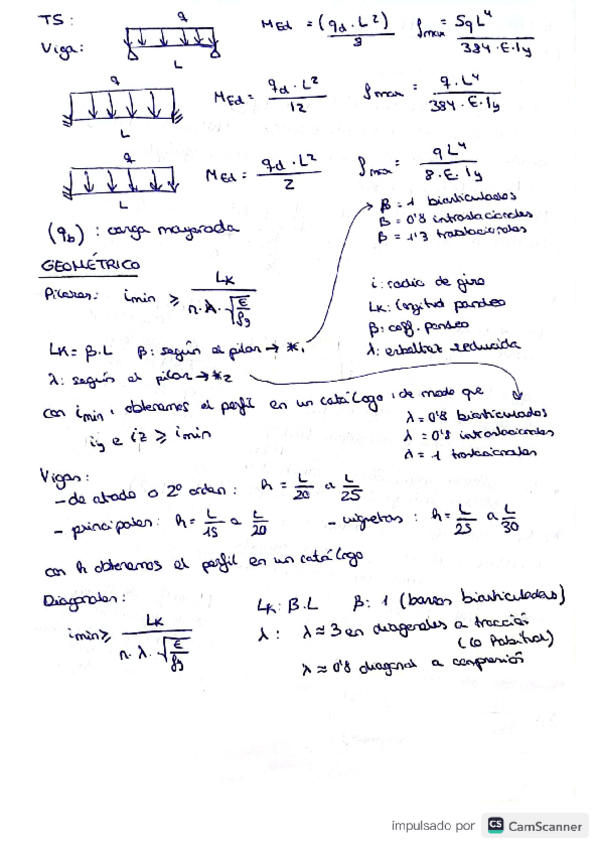 TS: q M_Ed = (q_d · L²)/8 f_max = 5qL⁴/384·E·I_y
Viga:
L
q M_Ed = q_d · L²/12 f_max = q·L⁴/384·E·I_y
L
q M_Ed = q_d · L²/2 f_max = qL⁴/8·E·I_y
L
β = 1 biarticulados
β = 0'8 intraslacionales
β = 1'3 traslacionales
(q_b) : carga mayorada
GEOMÉTRICO
Pilares: i_min ≥ L_K/π·λ·√(E/f_y)
i: radio de giro
L_K: longitud pandeo
β: coeff. pandeo
λ: esbeltez reducida
L_K = β·L β: según el pilar → *₁
λ: según el pilar → *₂
con i_min, obtenemos el perfil en un catálogo, de modo que
i_y e i_z ≥ i_min
λ = 0'8 biarticulados
λ = 0'8 intraslacionales
λ = 1 traslacionales
Vigas:
- de atado o 2º orden: h = L/20 a L/25
- principales: h = L/15 a L/20 - viguetas: h = L/25 a L/30
con h obtenemos el perfil en un catálogo
Diagonales: L_K: β·L β: 1 (barras biarticuladas)
i_min ≥ L_K/π·λ·√(E/f_y)
λ: λ ≈ 3 en diagonales a tracción
(lo habitual)
λ ≈ 0'8 diagonal a compresión
impulsado por CS CamScanner